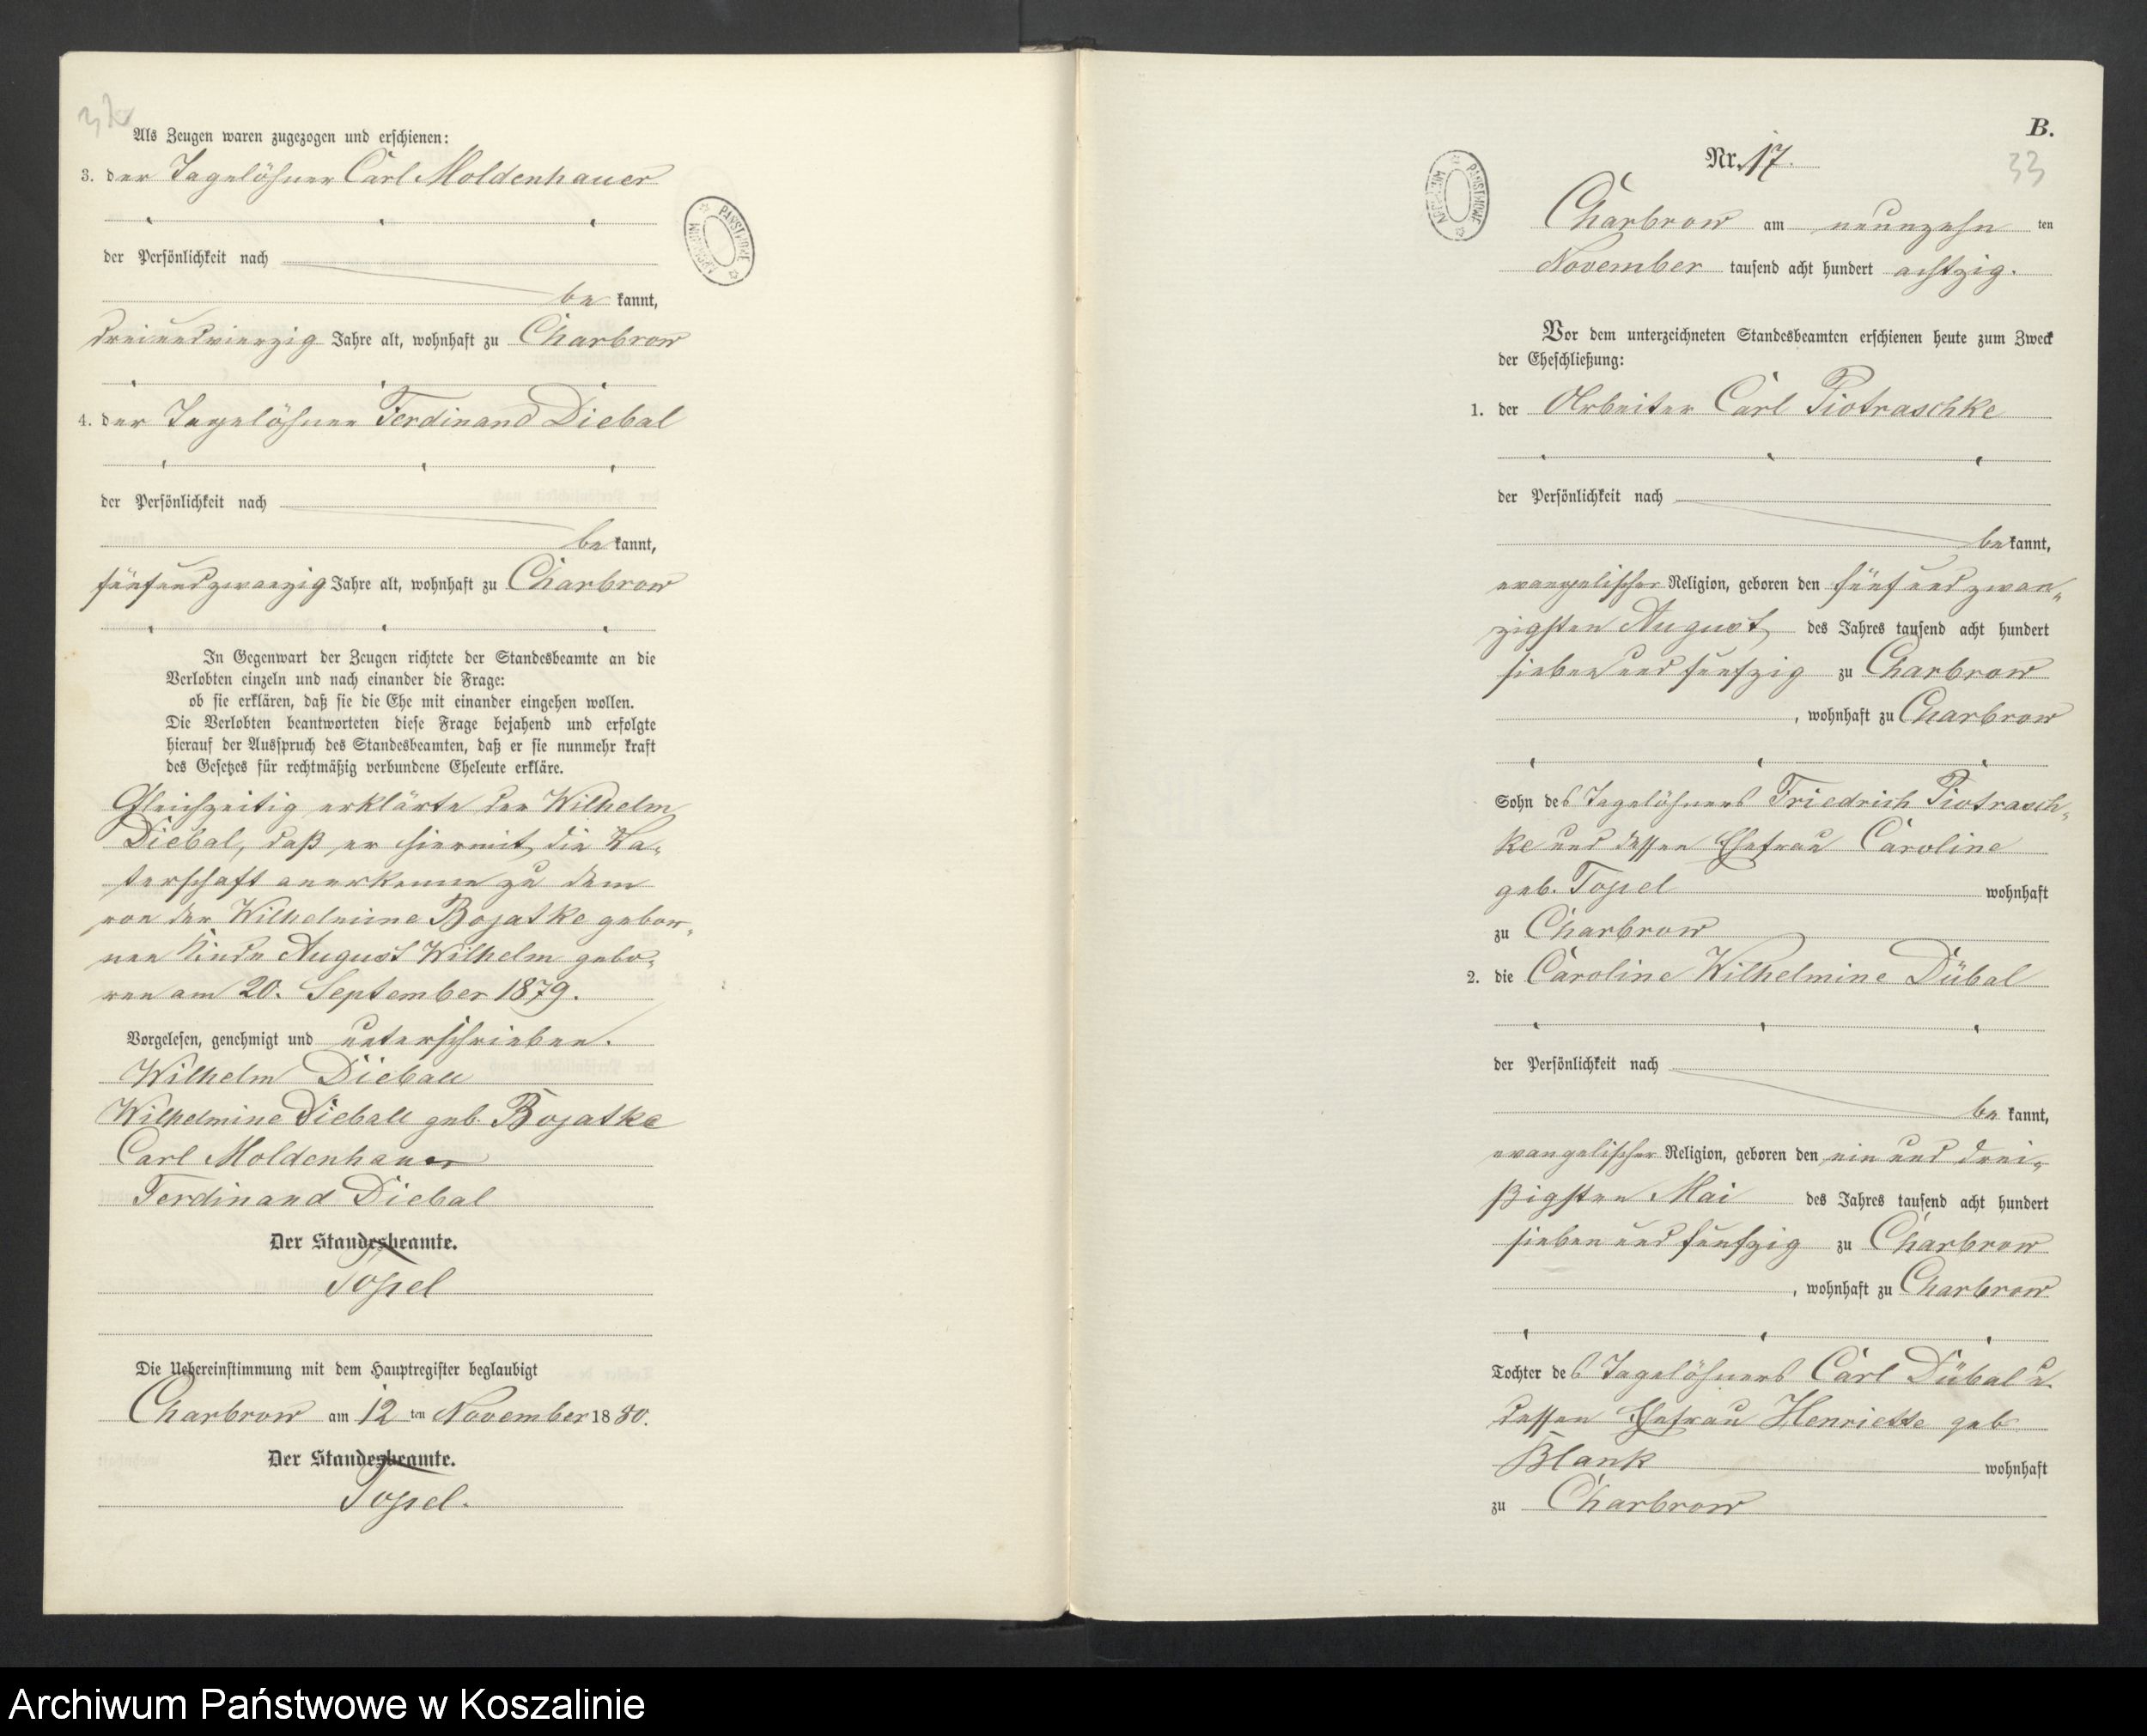 Als Zeugen waren zugezogen und erschienen:
3. der Tagelöhner Carl Moldenhauer
der Persönlichkeit nach
be kannt,
dreiundvierzig Jahre alt, wohnhaft zu Charbrow
4. der Tagelöhner Ferdinand Diebal
der Persönlichkeit nach
be kannt,
fünfundzwanzig Jahre alt, wohnhaft zu Charbrow
In Gegenwart der Zeugen richtete der Standesbeamte an die
Verlobten einzeln und nach einander die Frage:
ob sie erklären, daß sie die Ehe mit einander eingehen wollen.
Die Verlobten beantworteten diese Frage bejahend und erfolgte
hierauf der Ausspruch des Standesbeamten, daß er sie nunmehr kraft
des Gesetzes für rechtmäßig verbundene Eheleute erkläre.
Gleichzeitig erklärte der Wilhelm
Diebal, daß er hiermit die Va-
terschaft anerkenne zu dem
von der Wilhelmine Bojatke gebor-
nen Kinde August Wilhelm gebo-
ren am 20. September 1879.
Vorgelesen, genehmigt und unterschrieben.
Wilhelm Dieball
Wilhelmine Dieball geb. Bojatke
Carl Moldenhauer
Ferdinand Diebal
Der Standesbeamte.
Topel
Die Uebereinstimmung mit dem Hauptregister beglaubigt
Charbrow am 12 ten November 1880.
Der Standesbeamte.
Topel.
ARCHIWUM PAŃSTWOWE
B.
Nr. 17.
33
ARCHIWUM PAŃSTWOWE
Charbrow am neunzehn ten
November tausend acht hundert achtzig.
Vor dem unterzeichneten Standesbeamten erschienen heute zum Zweck
der Eheschließung:
1. der Arbeiter Carl Piotraschke
der Persönlichkeit nach
be kannt,
evangelischer Religion, geboren den fünfundzwan-
zigsten August des Jahres tausend acht hundert
sieben und funfzig zu Charbrow
, wohnhaft zu Charbrow
Sohn des Tagelöhners Friedrich Piotrasch-
ke und dessen Ehefrau Caroline
geb. Topel wohnhaft
zu Charbrow
2. die Caroline Wilhelmine Dübal
der Persönlichkeit nach
be kannt,
evangelischer Religion, geboren den ein und drei-
ßigsten Mai des Jahres tausend acht hundert
sieben und funfzig zu Charbrow
, wohnhaft zu Charbrow
Tochter des Tagelöhners Carl Dübal u.
dessen Ehefrau Henriette geb
Blank wohnhaft
zu Charbrow
Archiwum Państwowe w Koszalinie